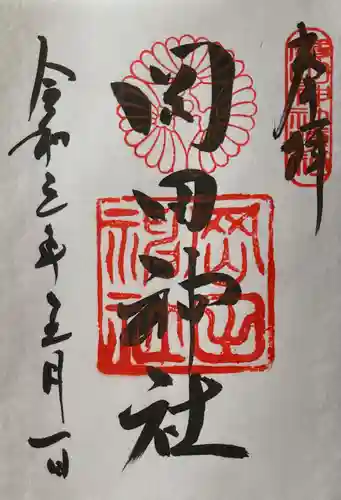 奉拝
岡田神社
岡田神社
令和三年五月一日